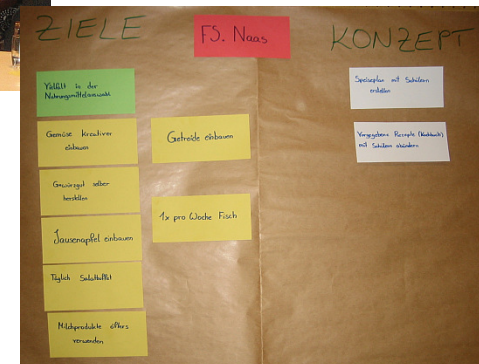 ZIELE
FS. Naas
KONZEPT
Vielfalt in der
Nahrungsmittelauswahl
Gemüse kreativer
einbauen
Gewürzgut selber
herstellen
Jausenapfel einbauen
Täglich Salatbuffet
Milchprodukte öfters
verwenden
Getreide einbauen
1x pro Woche Fisch
Speiseplan mit Schülern
erstellen
Vorgegebene Rezepte
mit Schülern abändern